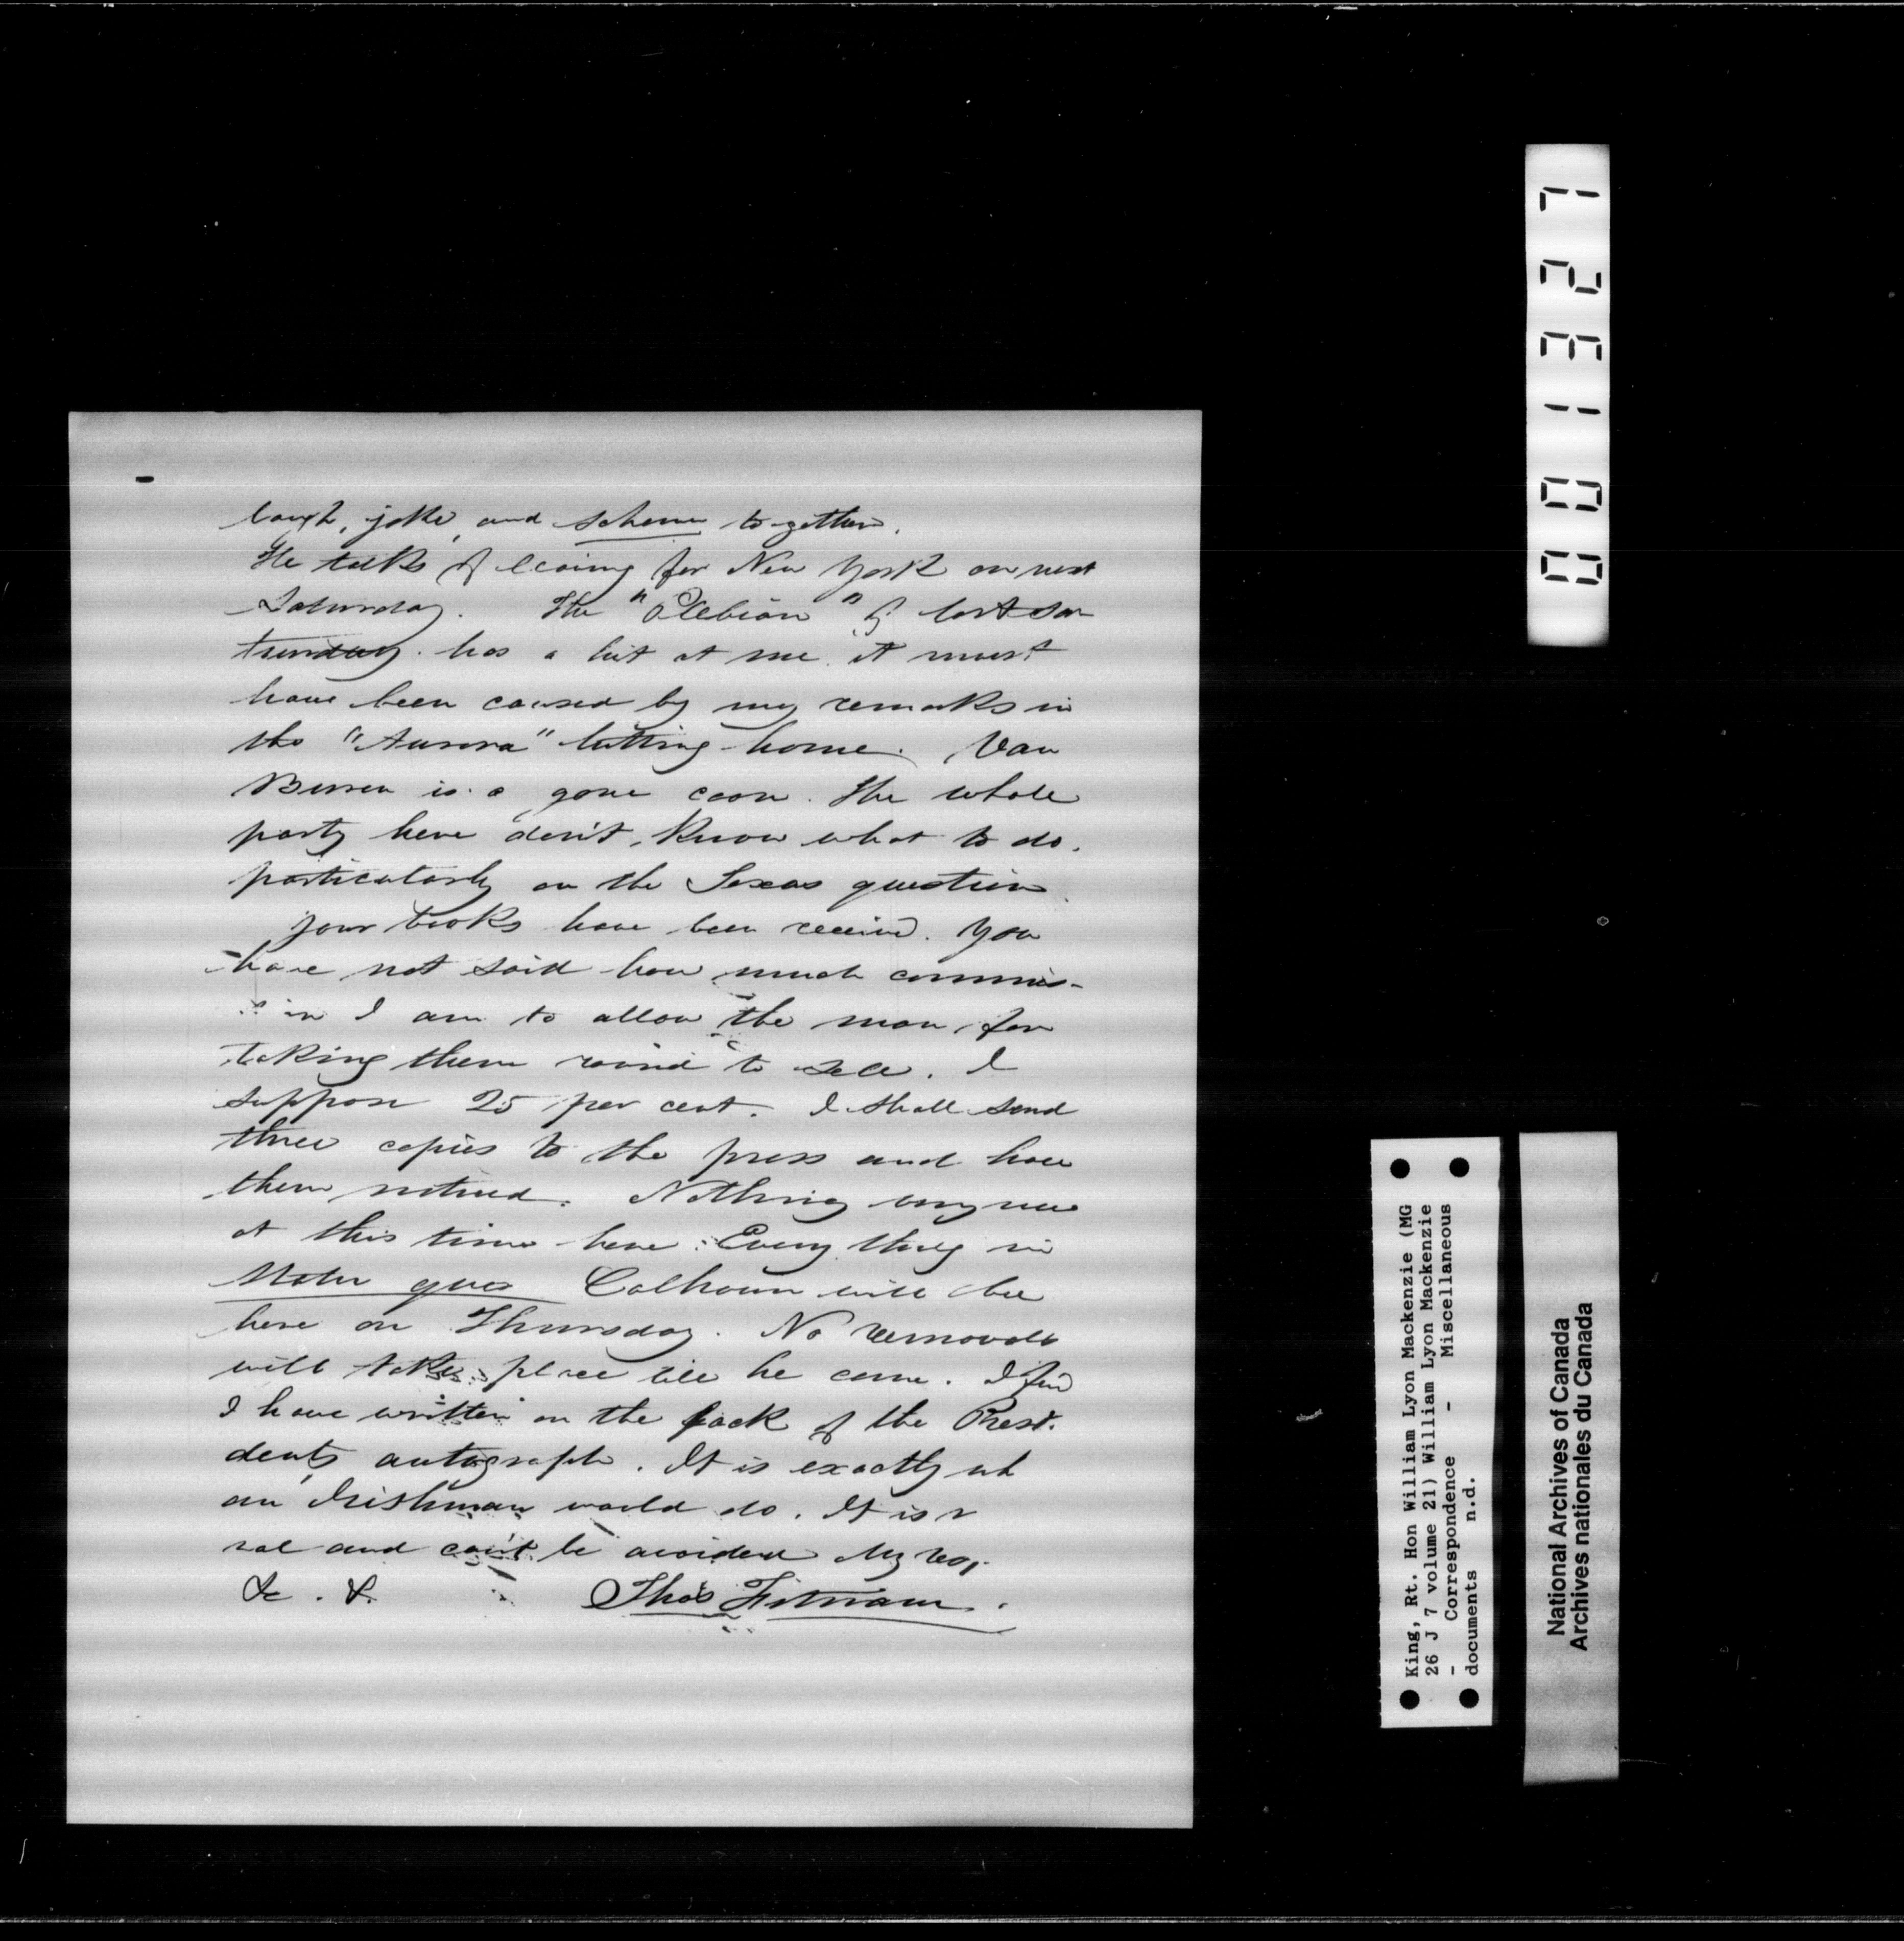 laugh, joke, and scheme together.
He talks of leaving for New York on next
Saturday. The "Plebian" of last Sa-
turday has a hit at me. it must
have been caused by my remarks in
the "Aurora" hitting home. Van
Buren is a gone coon. The whole
party here don't know what to do,
particularly on the Texas question.
Your books have been received. You
have not said how much commis-
in I am to allow the man for
taking them round to sell. I
suppose 25 per cent. I shall send
three copies to the press and have
them noticed. Nothing very new
at this time here. Every thing in
Calhoun will be
here on Thursday. No removals
will take place till he come. I find
I have written on the back of the Presi-
dents autograph. It is exactly wh
an Irishman would do. It is
ral and can't be avoided My
&c. &.
Thos
0 0 1 3 2 7
King, Rt. Hon William Lyon Mackenzie (MG
26 J 7 volume 21) William Lyon Mackenzie
- Correspondence - Miscellaneous
documents n.d.
National Archives of Canada
Archives nationales du Canada